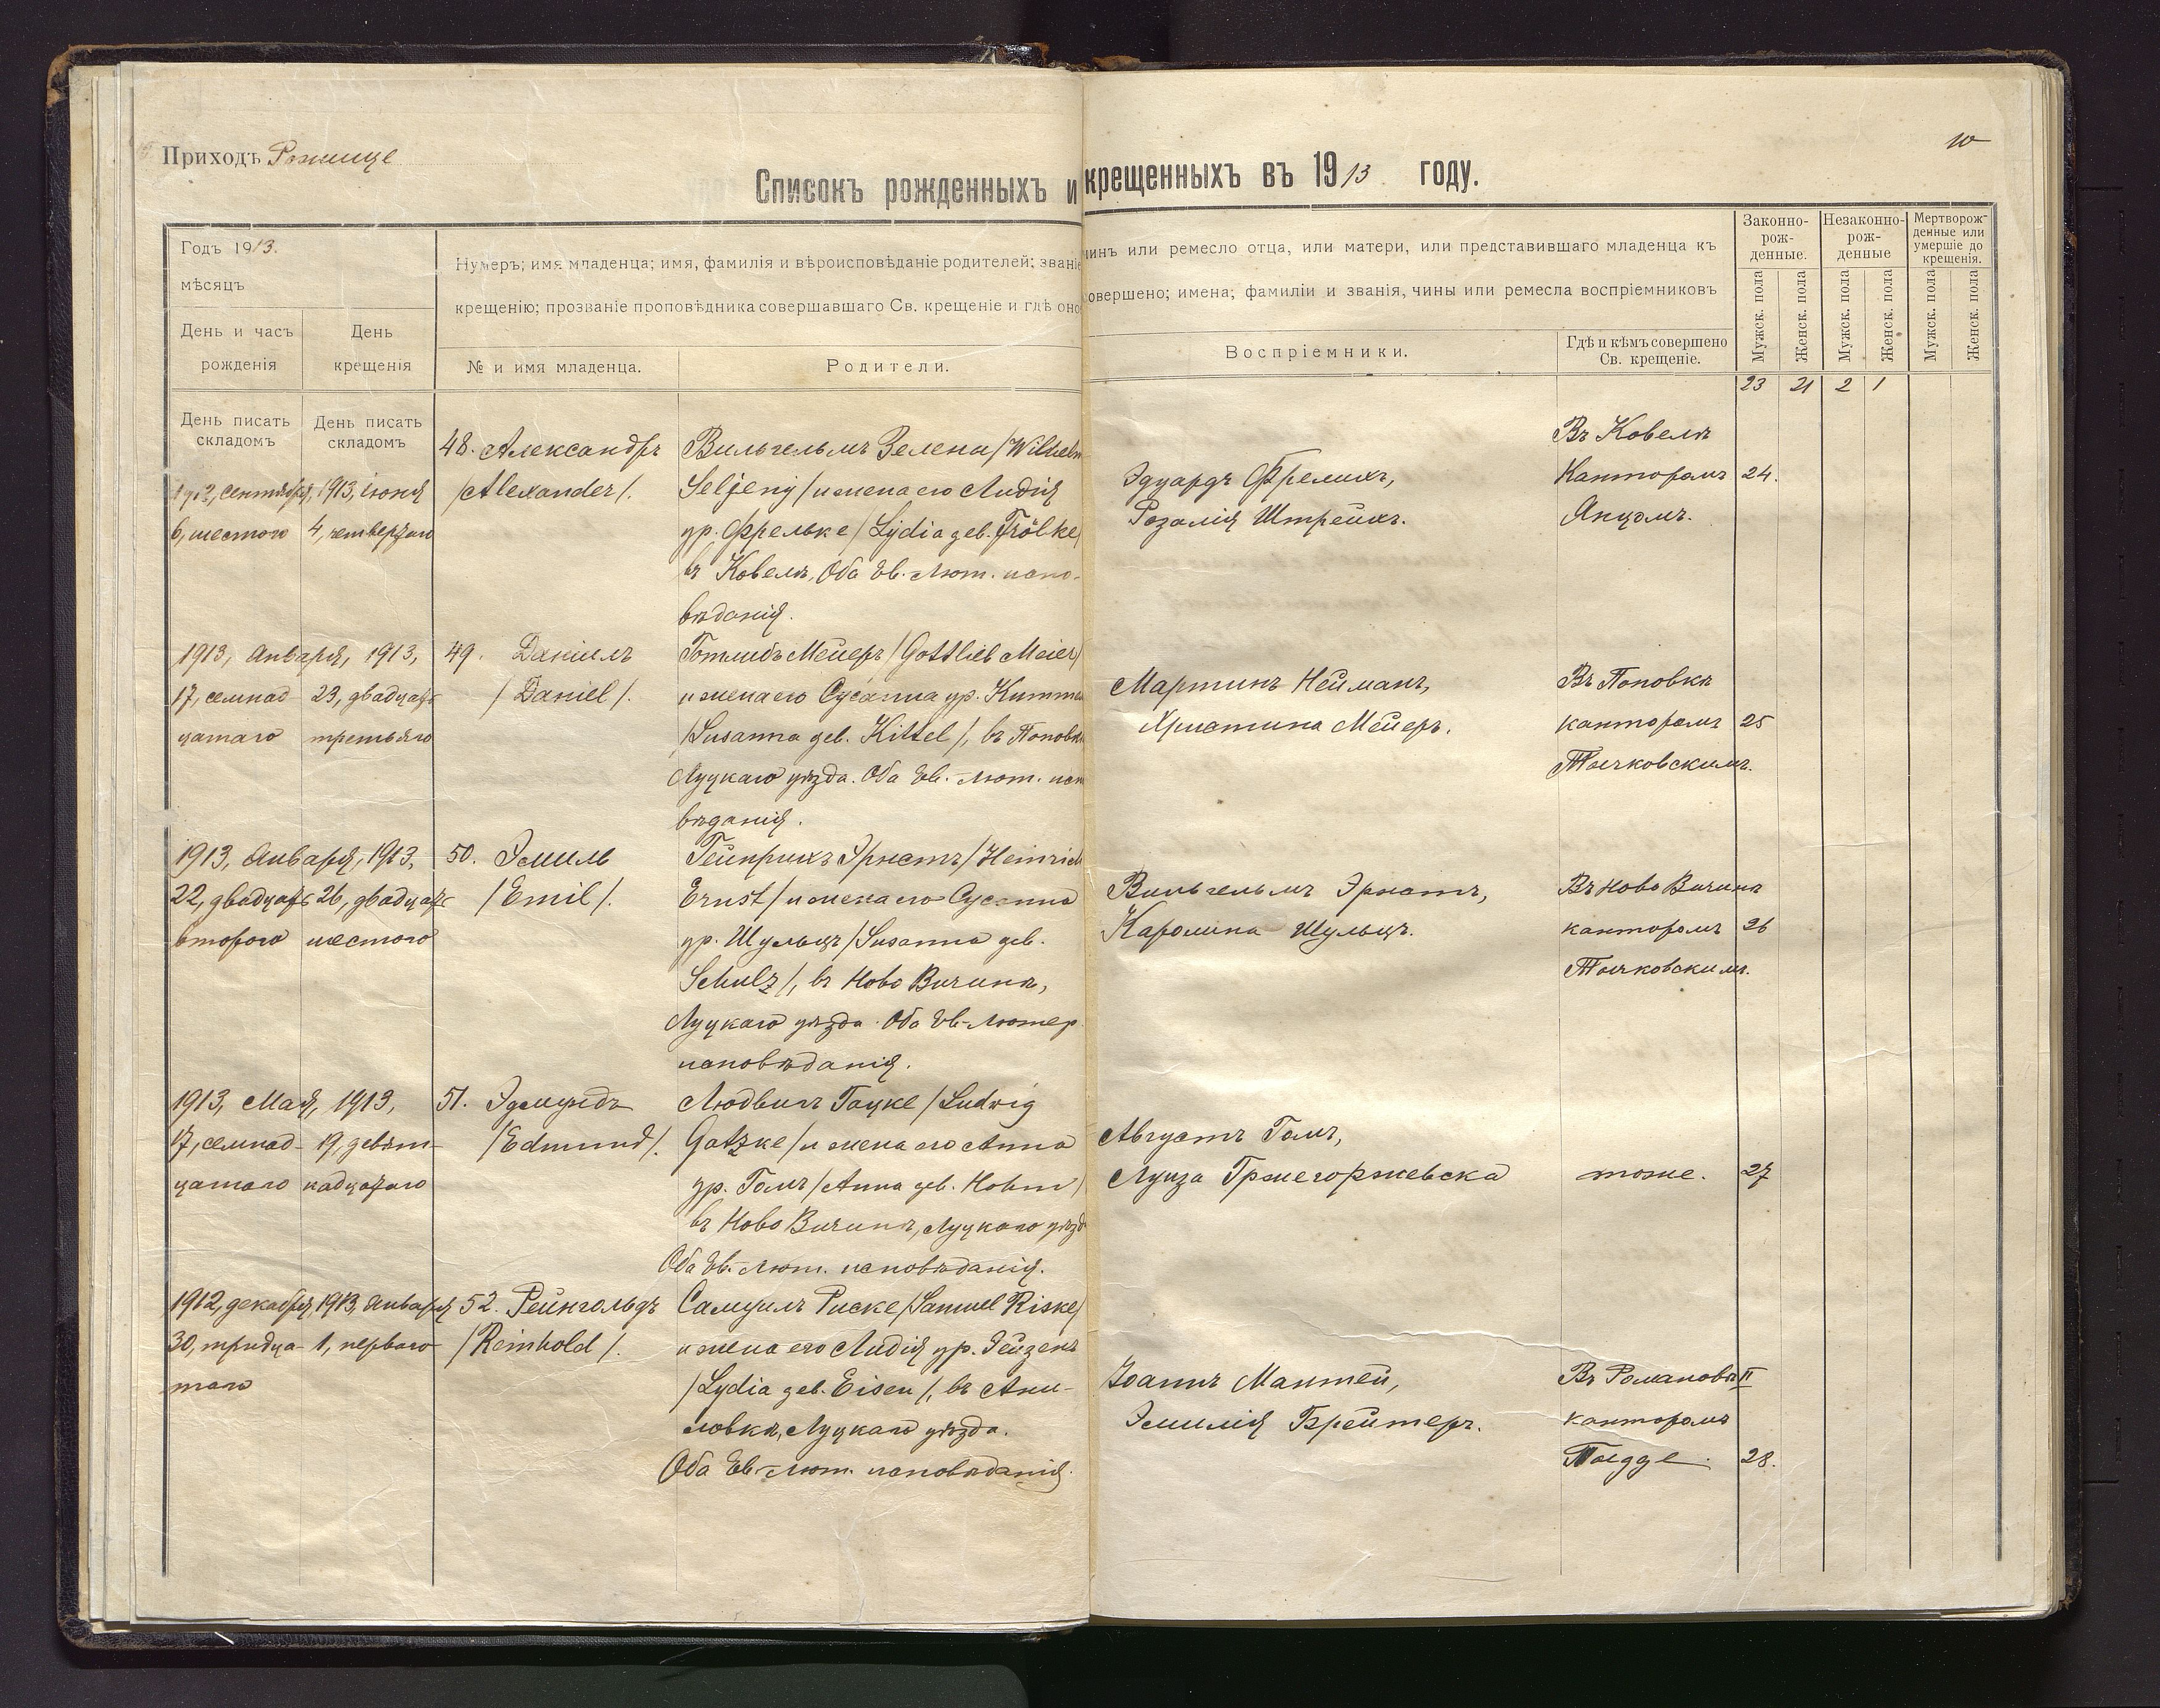 Приходъ Рожище
10
Списокъ рожденныхъ и крещенныхъ въ 1913 году.
Годъ 1913.
мѣсяцъ
День и часъ рожденія
День крещенія
Нумеръ; имя младенца; имя, фамилія и вѣроисповѣданіе родителей; званіе
чинъ или ремесло отца, или матери, или представившаго младенца къ
крещенію; прозваніе проповѣдника совершавшаго Св. крещеніе и гдѣ оно
совершено; имена; фамиліи и званія, чины или ремесла воспріемниковъ
№ и имя младенца.
Родители.
Воспріемники.
Гдѣ и кѣмъ совершено
Св. крещеніе.
Законно-
рож-
денные.
Незаконно-
рож-
денные
Мертворож-
денные или
умершіе до
крещенія.
Мужск. пола
Женск. пола
Мужск. пола
Женск. пола
Мужск. пола
Женск. пола
23 21 2 1
День писать
складомъ
День писать
складомъ
1912, сентября,
6, шестого
1913, іюня
4, четвертаго
48. Александръ
/Alexander/.
Вильгельмъ Зелени /Wilhelm
Seljeny/ и жена его Лидія
ур. Фрельке /Lydia геб. Frölke/
въ Ковелѣ, Оба Ев. Лют. испо-
вѣданія.
Эдуардъ Фрелихъ,
Розалія Штрейхъ.
Въ Ковелѣ
Канторомъ
Янцомъ.
24.
1913, Января,
17, семнад
цатаго
1913,
23, двадцать
третьяго
49. Даніилъ
/Daniel/.
Готлибъ Мейеръ /Gottlieb Meier/
и жена его Сусанна ур. Киттел
/Susanna геб. Kittel/, въ Поповк
Луцкаго уѣзда. Оба Ев. Лют. исп
вѣданія.
Мартинъ Нейманъ,
Христина Мейеръ.
Въ Поповкѣ
канторомъ
25
1913, Января,
22, двадцать
второго
1913,
26, двадцать
шестого
50. Эмиль
/Emil/.
Гейнрихъ Эрнстъ /Heinrich
Ernst/ и жена его Сусанна
ур. Шульцъ /Susanna геб.
Schulz/, въ Ново Вичинѣ,
Луцкаго уѣзда. Оба Ев-Лютер.
исповѣданія.
Вильгельмъ Эрнстъ,
Каролина Шульцъ.
Въ Ново Вичинѣ
канторомъ
26
1913, Мая,
17, семнад-
цатаго
1913,
19, девят-
надцатаго
51. Эдмундъ
/Edmund/.
Людвигъ Гацке /Ludwig
Gatzke/ и жена его Анна
ур. Гомъ /Anna геб. Hohm/
въ Ново Вичинѣ, Луцкаго уѣзд
Оба Ев. Лют. исповѣданія.
Августъ Гомъ,
Луиза Гржегоржевска
тоже.
27
1912, декабря,
30, тридца-
таго
1913, Января
1, перваго
52. Рейнгольдъ
/Reinhold/.
Самуилъ Риске /Samuel Riske/
и жена его Лидія ур. Эйзенъ
/Lydia геб. Eisen/, въ Аки-
ловкѣ, Луцкаго уѣзда.
Оба Ев-Лют. исповѣданія.
Іоаннъ Мантей,
Эмилія Брейтеръ.
Въ Романовѣ II
канторомъ
28.